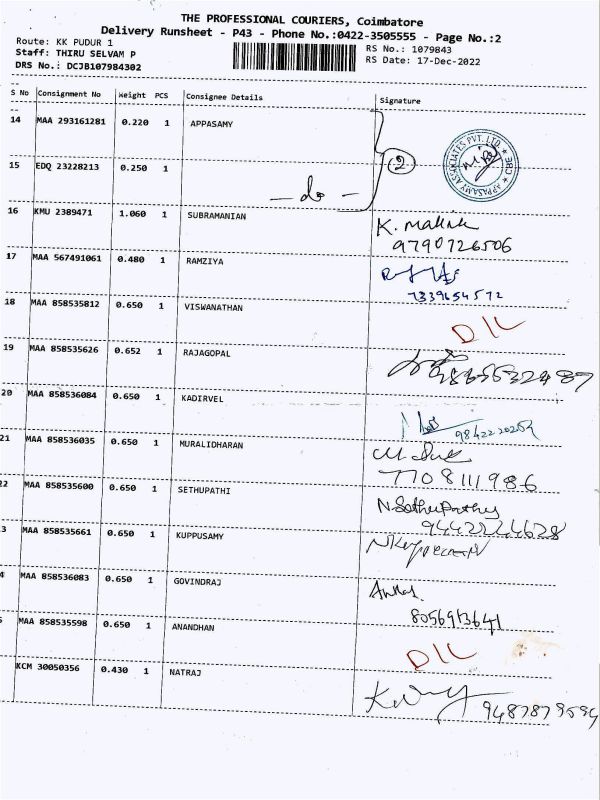 THE PROFESSIONAL COURIERS, Coimbatore
Delivery Runsheet - P43 - Phone No.:0422-3505555 - Page No.:2
Route: KK PUDUR 1
Staff: THIRU SELVAM P
DRS No.: DCJB107984302
RS No.: 1079843
RS Date: 17-Dec-2022
S No Consignment No Weight PCS Consignee Details Signature
14 MAA 293161281 0.220 1 APPASAMY
2
APPASAMY ASSOCIATES PVT. LTD. ★ CBE ★
15 EDQ 23228213 0.250 1
— do —
16 KMU 2389471 1.060 1 SUBRAMANIAN
K. 
9790726506
17 MAA 567491061 0.480 1 RAMZIYA
7339654572
18 MAA 858535812 0.650 1 VISWANATHAN
D/L
19 MAA 858535626 0.652 1 RAJAGOPAL
20 MAA 858536084 0.650 1 KADIRVEL
21 MAA 858536035 0.650 1 MURALIDHARAN
7708111986
22 MAA 858535600 0.650 1 SETHUPATHI
N.Sethupathy
9442224628
3 MAA 858535661 0.650 1 KUPPUSAMY
4 MAA 858536083 0.650 1 GOVINDRAJ
8056913641
5 MAA 858535598 0.650 1 ANANDHAN
D/L
KCM 30050356 0.430 1 NATRAJ